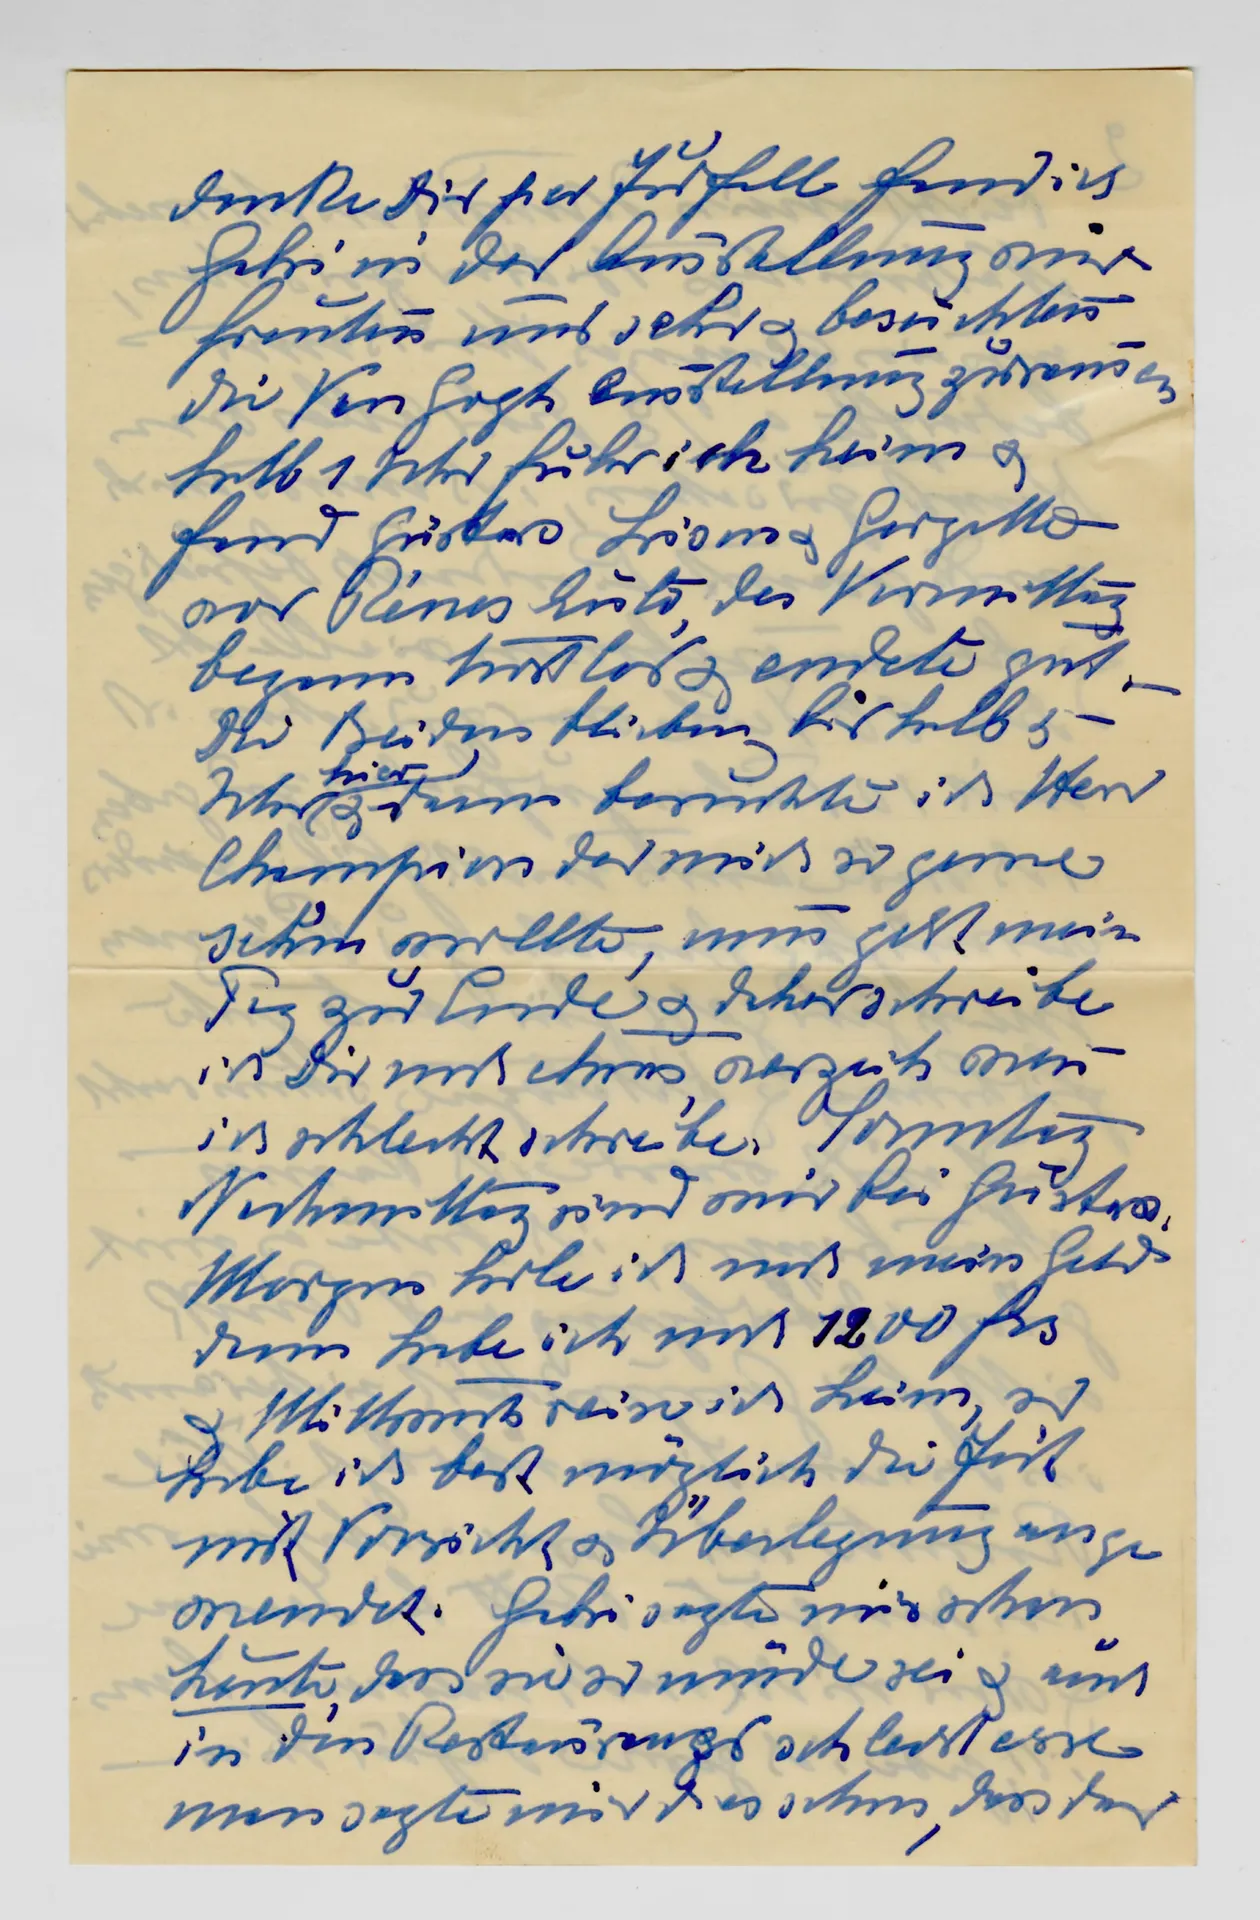 denke Dir per Zufall fand ich
Gabi in der Ausstellung wir
freuten uns sehr & besuchten
die Van Gogh Ausstellung zusammen
halb 1 Uhr fuhr ich heim &
fand Gustav &
vor Rénes Auto, der Vormittag
begann trostlos & endete gut. –
Die Beiden blieben bis halb 5 –
Uhr hier & dann besuchte ich Herr
Champion der mich so gerne
sehen wollte, nun geht mein
Tag zur Ende & daher schreibe
ich Dir noch etwas, verzeih wenn
ich schlecht schreibe. Sonntag
Nachmittag sind wir bei Gustav.
Morgen hole ich noch mein Geld
dann habe ich noch 1200 frs
& Mittwoch reise ich heim, so
habe ich best möglich die Zeit
mit Vorsicht & Überlegung ange
wendet. Gabi sagte mir schon
heute, dass sie so müde sei & auch
in den Restaurants schlecht esse
man sagte mir dies schon, dass der